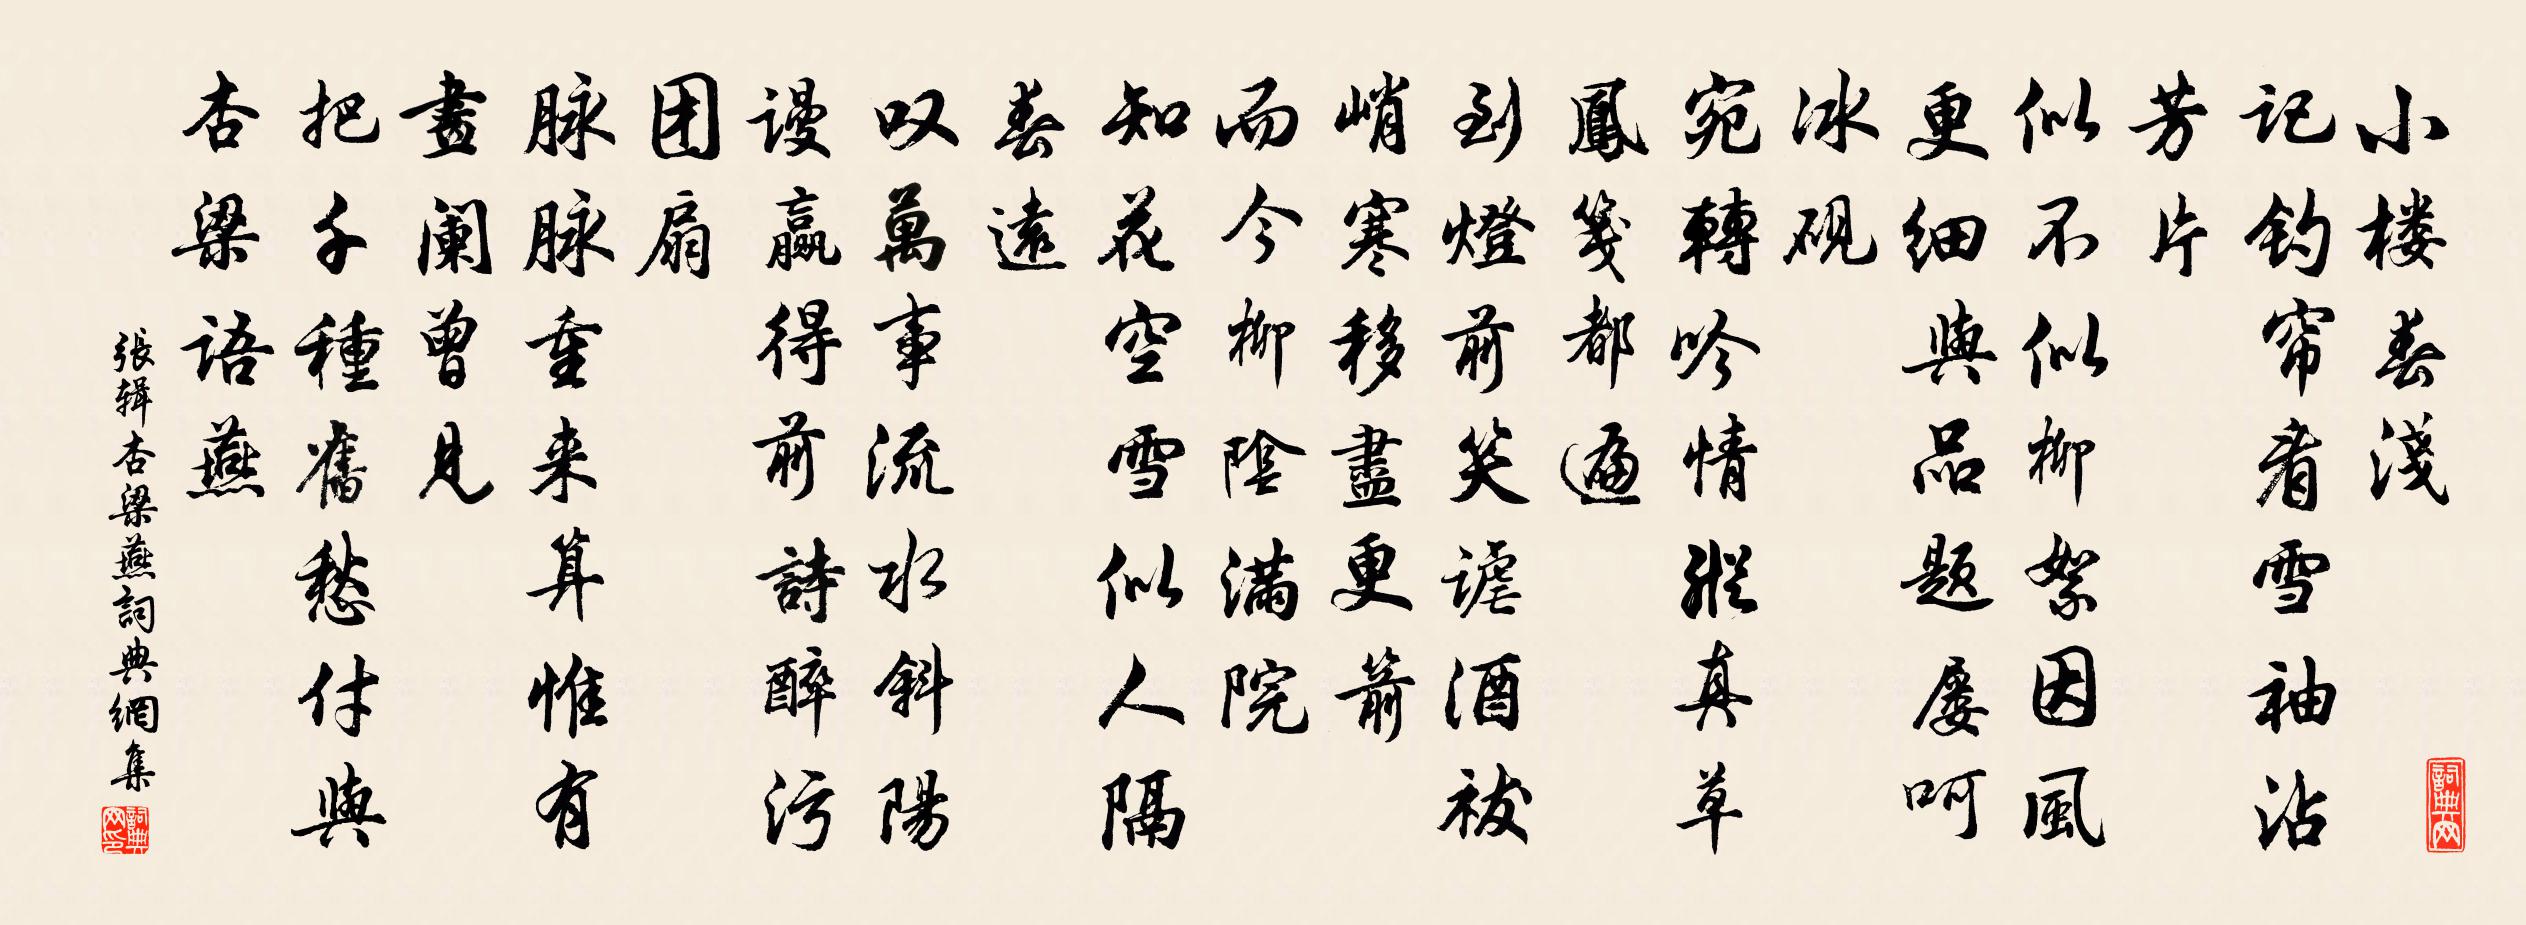 小楼春淺
記鈎帘看雪袖沾
芳片
似不似柳絮因風
更細與品题屡呵
冰硯
宛轉吟情縱真草
鳳箋都遍
到燈前笑謔酒祓
峭寒移盡更箭
而今柳陰满院
知花空雪似人隔
春遠
叹萬事流水斜陽
谩贏得前詩醉污
团扇
脉脉重来算惟有
畫阑曾見
把千種舊愁付與
杏梁語燕
張辑杏梁燕詞典網集
詞典网
詞典网印